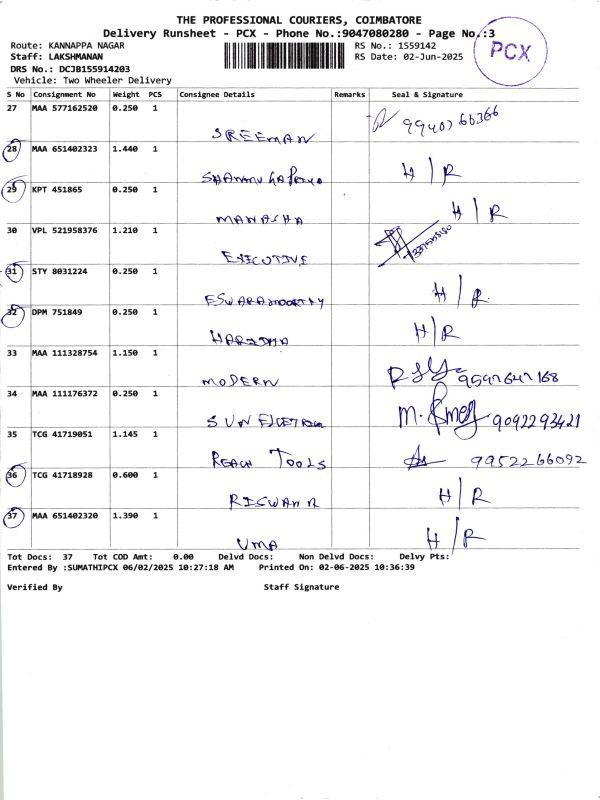 THE PROFESSIONAL COURIERS, COIMBATORE
Delivery Runsheet - PCX - Phone No.:9047080280 - Page No.:3
PCX
Route: KANNAPPA NAGAR RS No.: 1559142
Staff: LAKSHMANAN RS Date: 02-Jun-2025
DRS No.: DCJB155914203
Vehicle: Two Wheeler Delivery
S No Consignment No Weight PCS Consignee Details Remarks Seal & Signature
27 MAA 577162520 0.250 1
SREEMAN 9940766366
28 MAA 651402323 1.440 1
H/R
29 KPT 451865 0.250 1
MANASHA H/R
30 VPL 521958376 1.210 1
EXECUTIVE
31 STY 8031224 0.250 1
ESWARAMOORTHY H/R
32 DPM 751849 0.250 1
H/R
33 MAA 111328754 1.150 1
MODERN 9597647168
34 MAA 111176372 0.250 1
SUN 9092293421
35 TCG 41719051 1.145 1
REACH TOOLS 9952266092
36 TCG 41718928 0.600 1
H/R
37 MAA 651402320 1.390 1
UMA H/R
Tot Docs: 37 Tot COD Amt: 0.00 Delvd Docs: Non Delvd Docs: Delvy Pts:
Entered By :SUMATHIPCX 06/02/2025 10:27:18 AM Printed On: 02-06-2025 10:36:39
Verified By Staff Signature